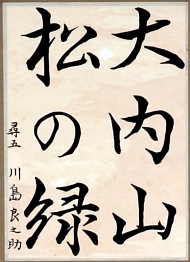 大内山
松の緑
尋五 川島良之助